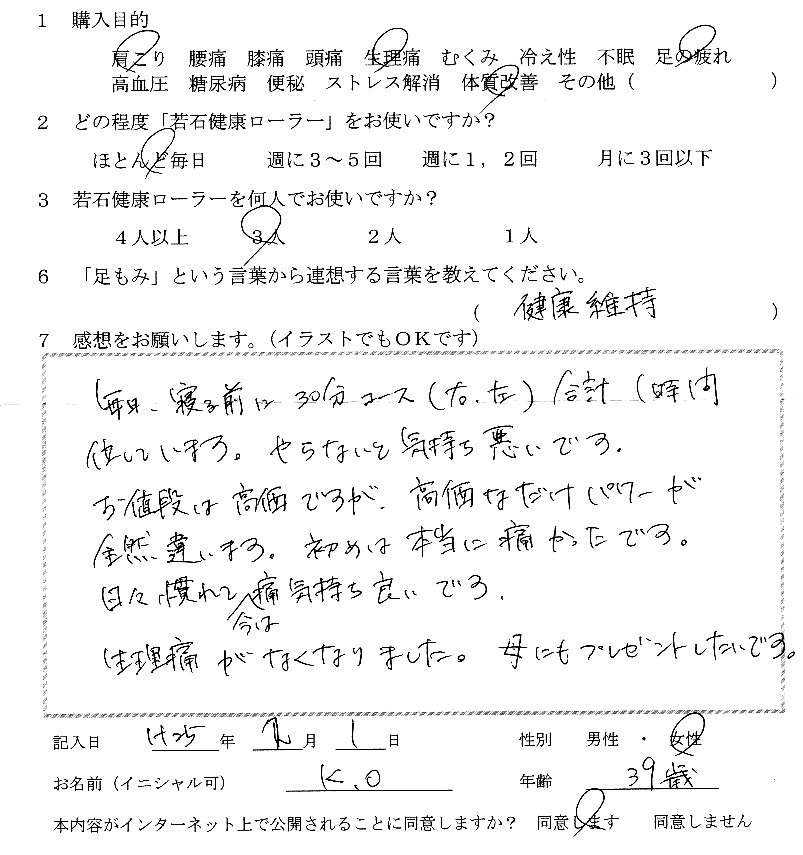 1 購入目的
肩こり 腰痛 膝痛 頭痛 生理痛 むくみ 冷え性 不眠 足の疲れ
高血圧 糖尿病 便秘 ストレス解消 体質改善 その他( )
2 どの程度「若石健康ローラー」をお使いですか?
ほとんど毎日 週に3~5回 週に1,2回 月に3回以下
3 若石健康ローラーを何人でお使いですか?
4人以上 3人 2人 1人
6 「足もみ」という言葉から連想する言葉を教えてください。
( 健康維持 )
7 感想をお願いします。(イラストでもOKです)
毎日、寝る前に30分コース(右、左)合計1時間
位しています。やらないと気持ち悪いです。
お値段は高価ですが、高価なだけパワーが
全然違います。初めは本当に痛かったです。
日々慣れて今は痛気持ち良いです。
生理痛がなくなりました。母にもプレゼントしたいです。
記入日 H25年 2月 1日 性別 男性 ・ 女性
お名前(イニシャル可) K.O 年齢 39歳
本内容がインターネット上で公開されることに同意しますか? 同意します 同意しません